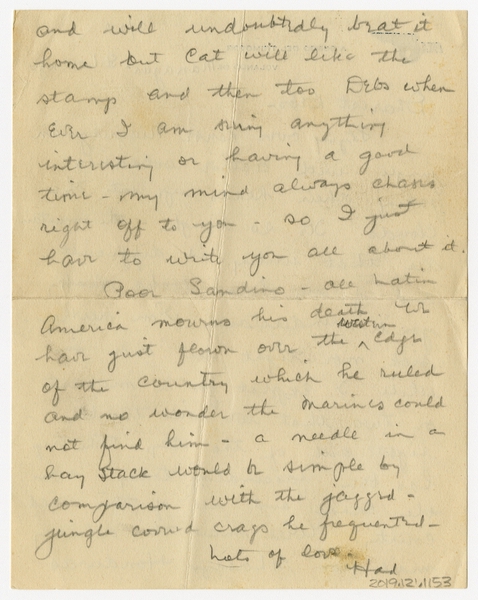 and will undoubtedly beat it
home but Cat will like the
stamp and then too Debs when
ever I am seeing anything
interesting or having a good
time - my mind always chases
right off to you - so I just
have to write you all about it.
Poor Sandino - all Latin
America mourns his death We
have just flown over the western edge
of the country which he ruled
and no wonder the marines could
not find him - a needle in a
hay stack would be simple by
comparison with the jagged -
jungle covered crags he frequented -
Lots of love.
Had
2019.121.1153